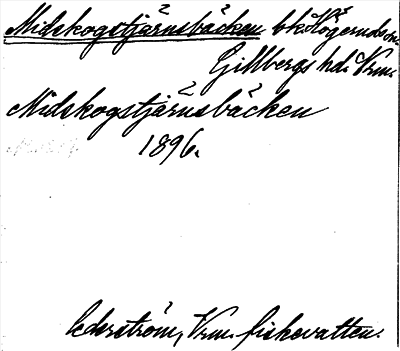 Midskogstjärnsbäcken bk Högerud sn.
Gillbergs hd. Vrm.
Midskogstjärnsbäcken
1896.
Cederström, Vrm. fiskevatten.